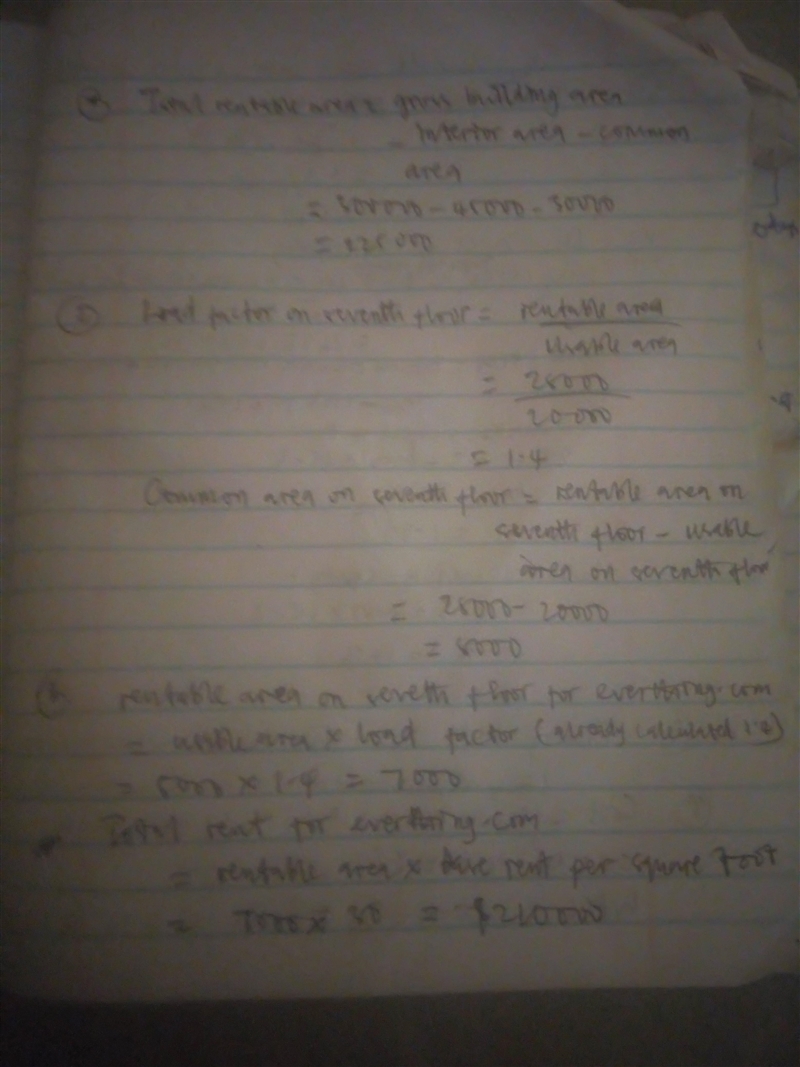 Total rentable area = gross building area
- interior area - common
area
= 300000 - 45000 - 30000
= 225000
② Load factor on seventh floor = rentable area
usable area
= 28000
20000
= 1.4
Common area on seventh floor = rentable area on
seventh floor - usable
area on seventh floor
= 28000 - 20000
= 8000
rentable area on seveth floor for everthing.com
= usable area x load factor (already calculated 1.4)
= 5000 x 1.4 = 7000
Total rent for everthing.com
= rentable area x base rent per square foot
= 7000 x 30 = $210000